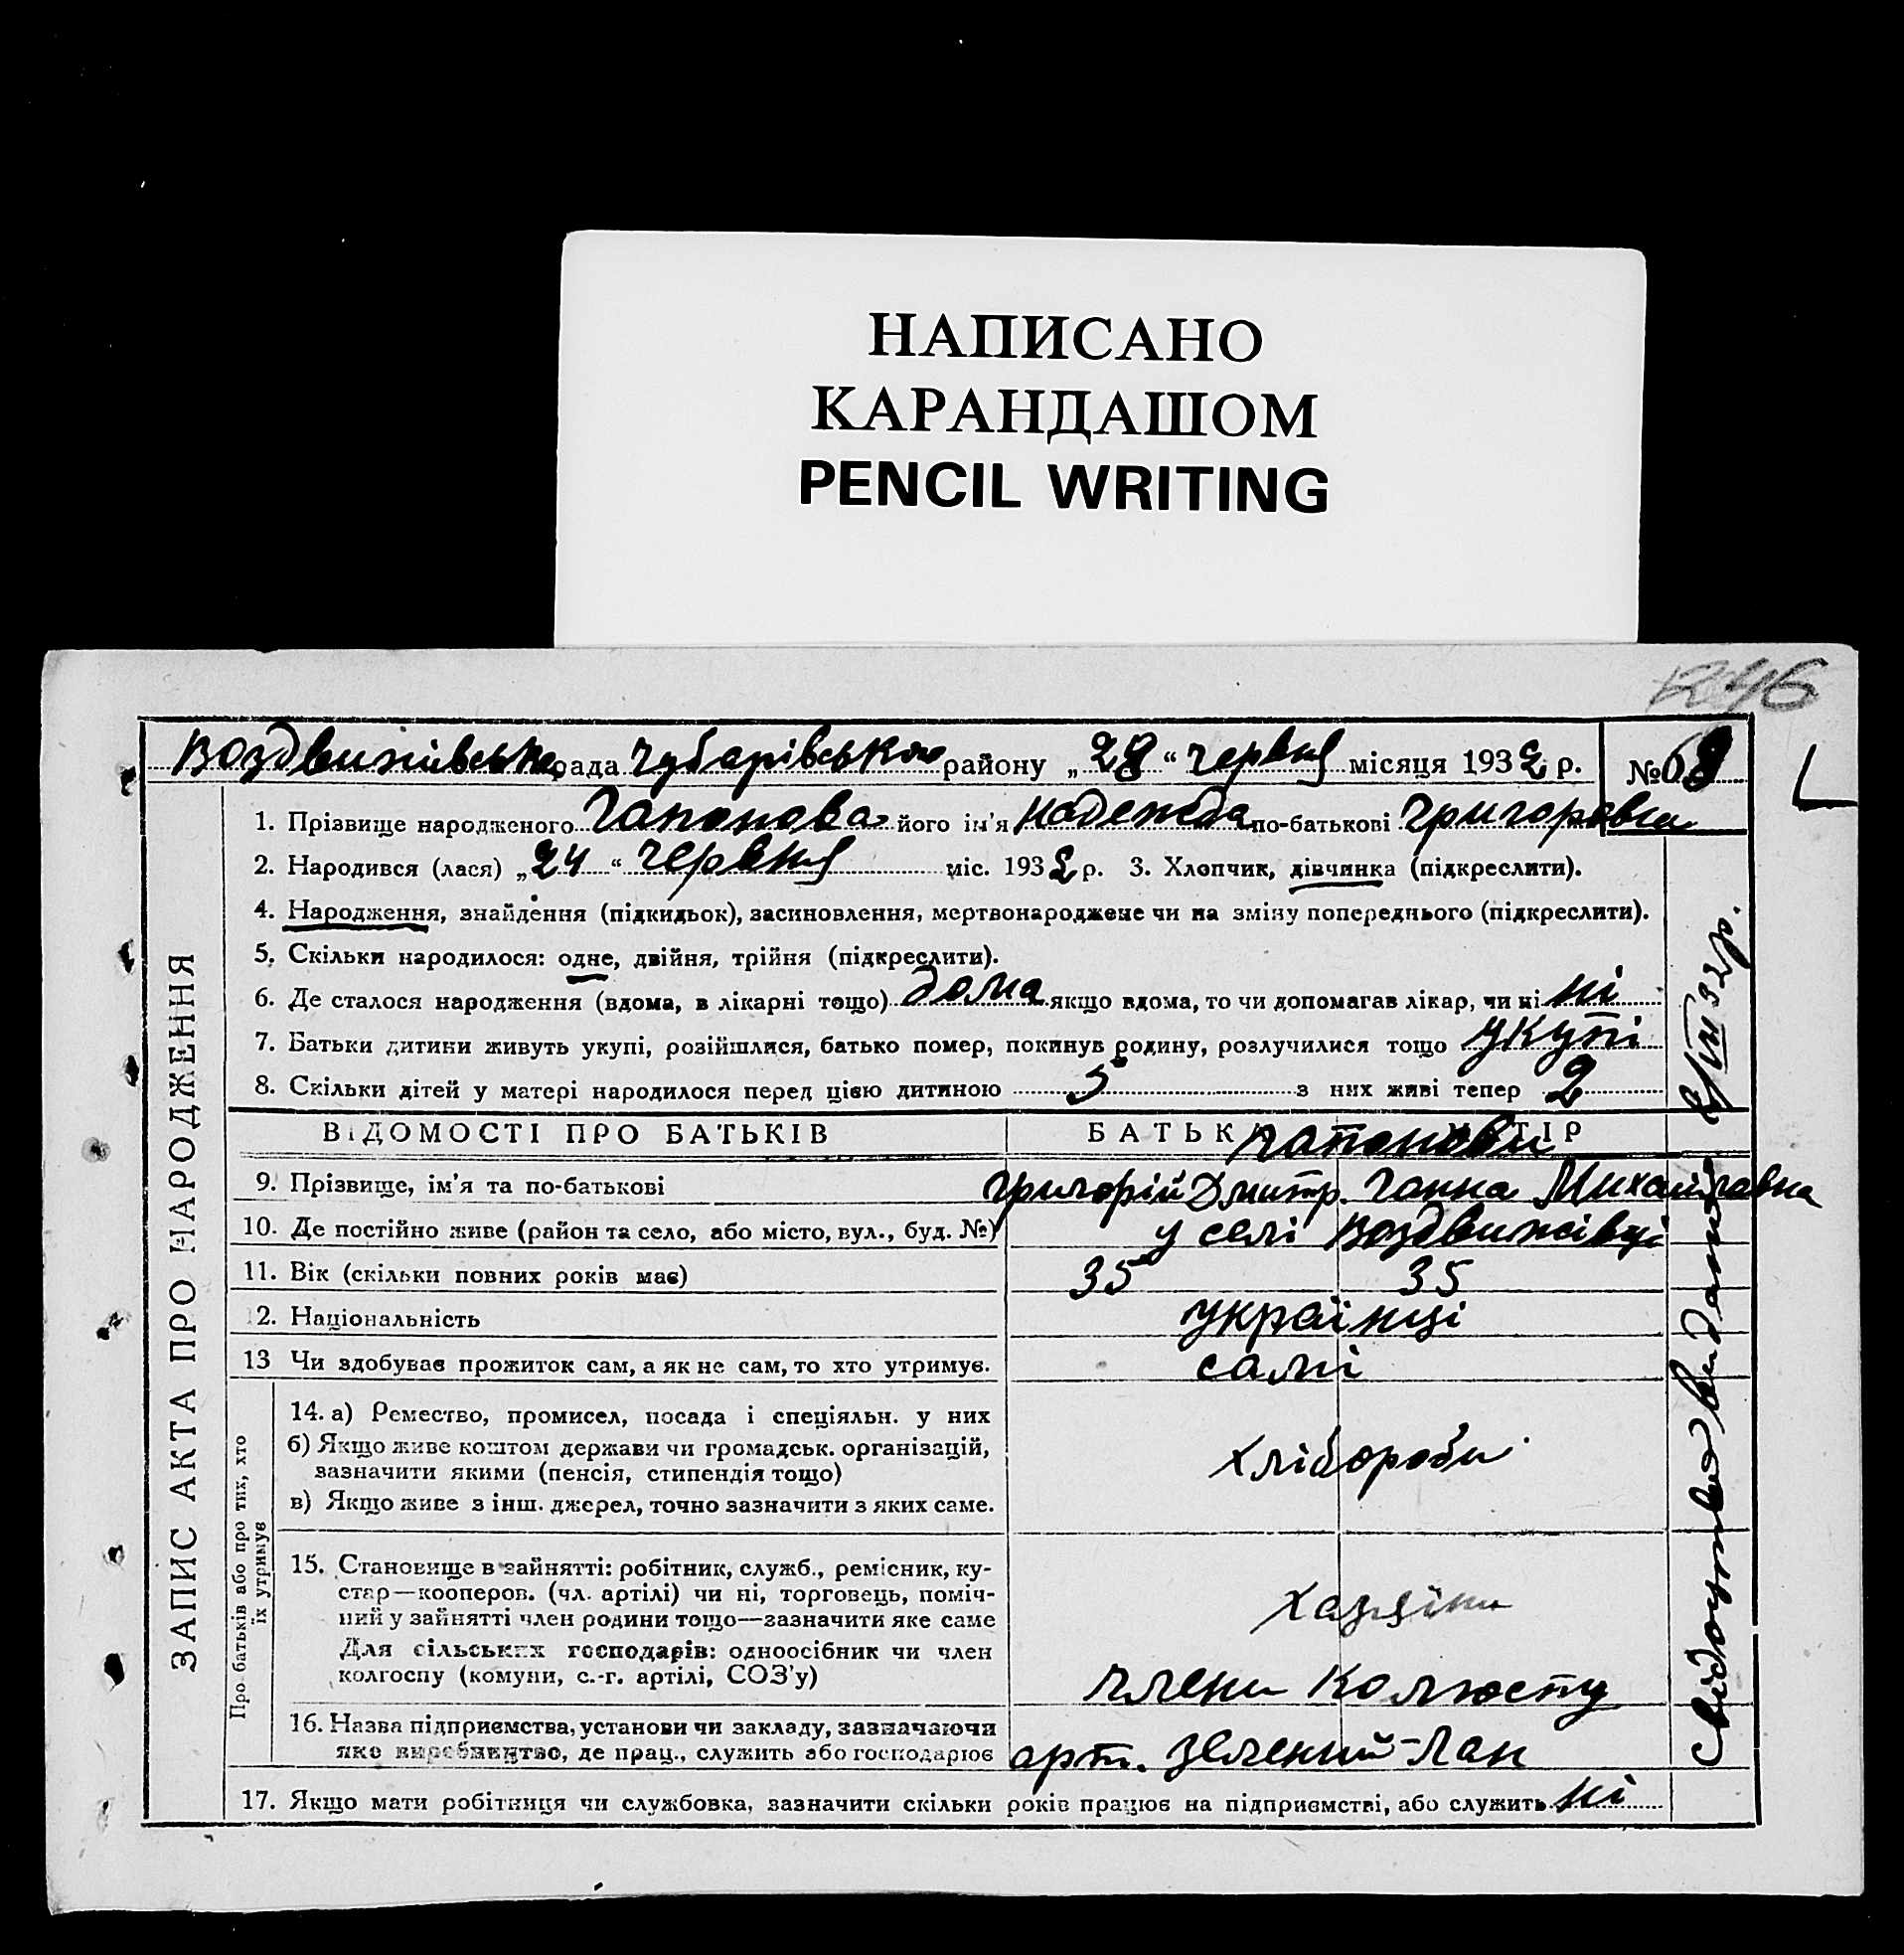 НАПИСАНО
КАРАНДАШОМ
PENCIL WRITING
Воздвижівська рада Чубарівського району „28“ червня місяця 1932 р. № 68
1. Прізвище народженого Гапонова його ім'я Надежда по-батькові Григоровна
2. Народився (лася) „24“ червня міс. 1932 р. 3. Хлопчик, дівчинка (підкреслити).
4. Народження, знайдення (підкидьок), засиновлення, мертвонароджене чи на зміну попереднього (підкреслити).
5. Скільки народилося: одне, двійня, трійня (підкреслити).
6. Де сталося народження (вдома, в лікарні тощо) дома якщо вдома, то чи допомагав лікар, чи ні ні
7. Батьки дитини живуть укупі, розійшлися, батько помер, покинув родину, розлучилися тощо укупі
8. Скільки дітей у матері народилося перед цією дитиною 5 з них живі тепер 2
ВІДОМОСТІ ПРО БАТЬКІВ БАТЬК ТІР
Гапонови
9. Прізвище, ім'я та по-батькові Григорій Дмитр. Ганна Михайлавна
10. Де постійно живе (район та село, або місто, вул., буд. №) у селі Воздвижівці
11. Вік (скільки повних років має) 35 35
2. Національність українці
13 Чи здобуває прожиток сам, а як не сам, то хто утримує. самі
Про батьків або про тих, хто
їх утримує
14. а) Ремество, промисел, посада і спеціяльн. у них
б) Якщо живе коштом держави чи громадськ. організацій,
зазначити якими (пенсія, стипендія тощо)
в) Якщо живе з інш. джерел, точно зазначити з яких саме.
хлібороби
15. Становище в зайнятті: робітник, служб., ремісник, ку-
стар—кооперов. (чл. артілі) чи ні, торговець, поміч-
ний у зайнятті член родини тощо—зазначити яке саме
Для сільських господарів: одноосібник чи член
колгоспу (комуни, с.-г. артілі, СОЗ'у)
хазяїни
члени колгоспу
16. Назва підприємства, установи чи закладу, зазначаючи
яке виробництво, де прац., служить або господарює
арт. Зелений-Лан
17. Якщо мати робітниця чи службовка, зазначити скільки років працює на підприємстві, або служить ні
ЗАПИС АКТА ПРО НАРОДЖЕННЯ